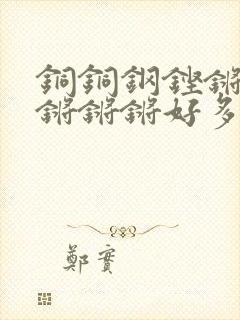 銅銅鋼鏗鏘
鏘鏘鏘好多
鄭實